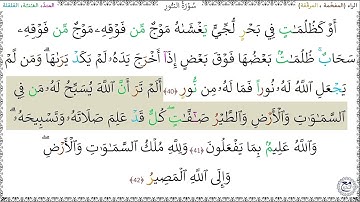 سُورَةُ النُّور
أَوْ كَظُلُمَٰتٍ فِي بَحْرٍ لُّجِّيٍّ يَغْشَىٰهُ مَوْجٌ مِّن فَوْقِهِۦ مَوْجٌ مِّن فَوْقِهِۦ
سَحَابٌ ۚ ظُلُمَٰتٌۢ بَعْضُهَا فَوْقَ بَعْضٍ إِذَآ أَخْرَجَ يَدَهُۥ لَمْ يَكَدْ يَرَىٰهَا ۗ وَمَن لَّمْ
يَجْعَلِ ٱللَّهُ لَهُۥ نُورًا فَمَا لَهُۥ مِن نُّورٍ ﴿40﴾ أَلَمْ تَرَ أَنَّ ٱللَّهَ يُسَبِّحُ لَهُۥ مَن فِي
ٱلسَّمَٰوَٰتِ وَٱلْأَرْضِ وَٱلطَّيْرُ صَٰٓفَّٰتٍ ۖ كُلٌّ قَدْ عَلِمَ صَلَاتَهُۥ وَتَسْبِيحَهُۥ ۗ
وَٱللَّهُ عَلِيمٌۢ بِمَا يَفْعَلُونَ ﴿41﴾ وَلِلَّهِ مُلْكُ ٱلسَّمَٰوَٰتِ وَٱلْأَرْضِ ۖ
وَإِلَى ٱللَّهِ ٱلْمَصِيرُ ﴿42﴾